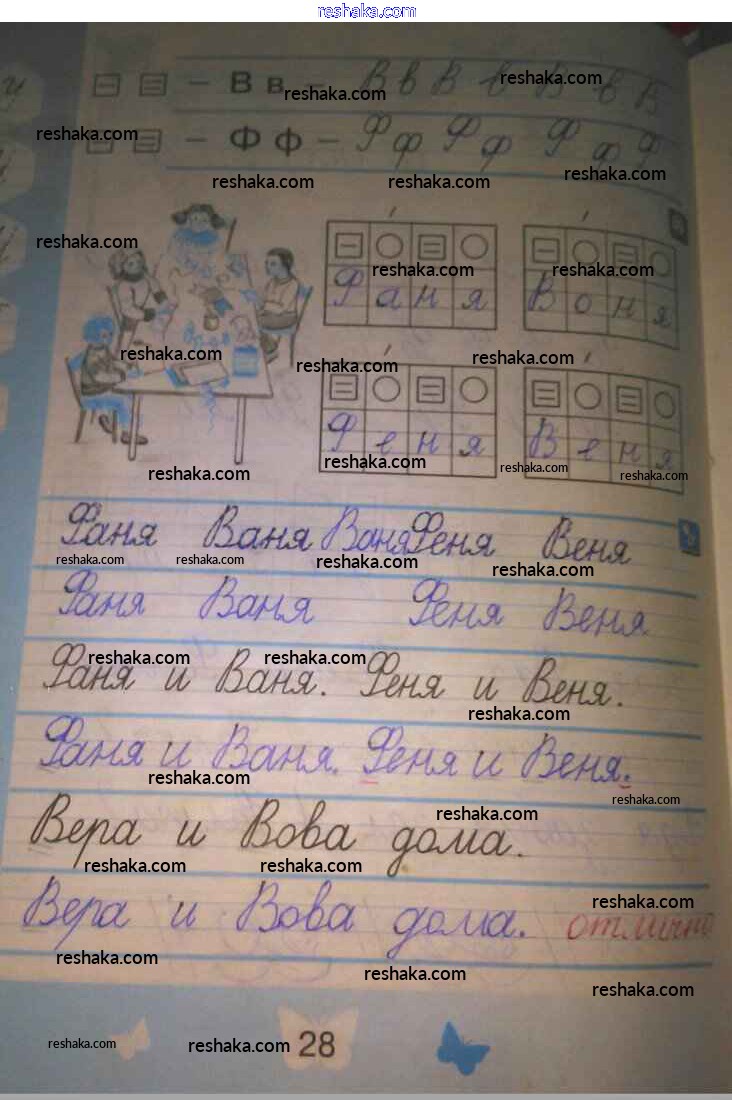 reshaka.com
– В в – В в В в В в В
– Ф ф – Ф ф Ф ф Ф ф Ф
Ф а н я В о н я
Ф е н я В е н я
Фаня Ваня Ваня Феня Веня
Фаня Ваня Феня Веня
Фаня и Ваня. Феня и Веня.
Фаня и Ваня. Феня и Веня.
Вера и Вова дома.
Вера и Вова дома. отлично
28